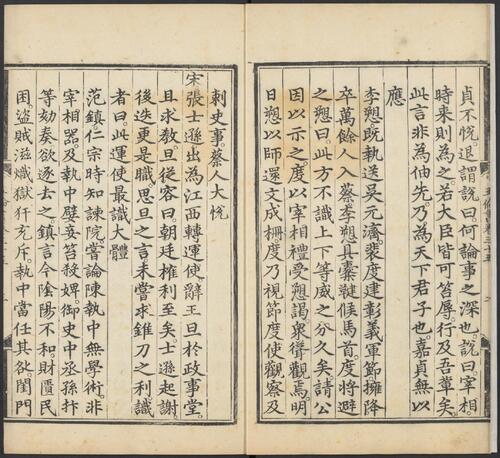 貞不悅。退謂說曰。何論事之深也。說曰。宰相。
時來則為之。若大臣皆可笞辱。行及吾輩矣。
此言非為伷先。乃為天下君子也。嘉貞無以
應
李愬既執送吳元濟。裴度建彰義軍節。擁降
卒萬餘人入蔡。李愬具櫜鞬候馬首。度將避
之。愬曰。此方不識上下等威之分久矣。請公
因以示之。度以宰相禮受愬謁。衆聳觀焉。明
日愬以師還文成柵。度乃視節度使觀察及
刺史事。蔡人大悅
宋張士遜出為江西轉運使。辭王旦於政事堂。
且求教。旦從容曰。朝廷榷利至矣。士遜起謝
後迭更是職。思旦之言。未嘗求錐刀之利。識
者曰。此運使最識大體
范鎮仁宗時知諫院。嘗論陳執中無學術。非
宰相器。及執中嬖妾笞殺婢。御史中丞孫抃
等劾奏。欲逐去之。鎮言今陰陽不和。財匱民
困。盜賊滋熾。獄犴充斥。執中當任其欲。閨門